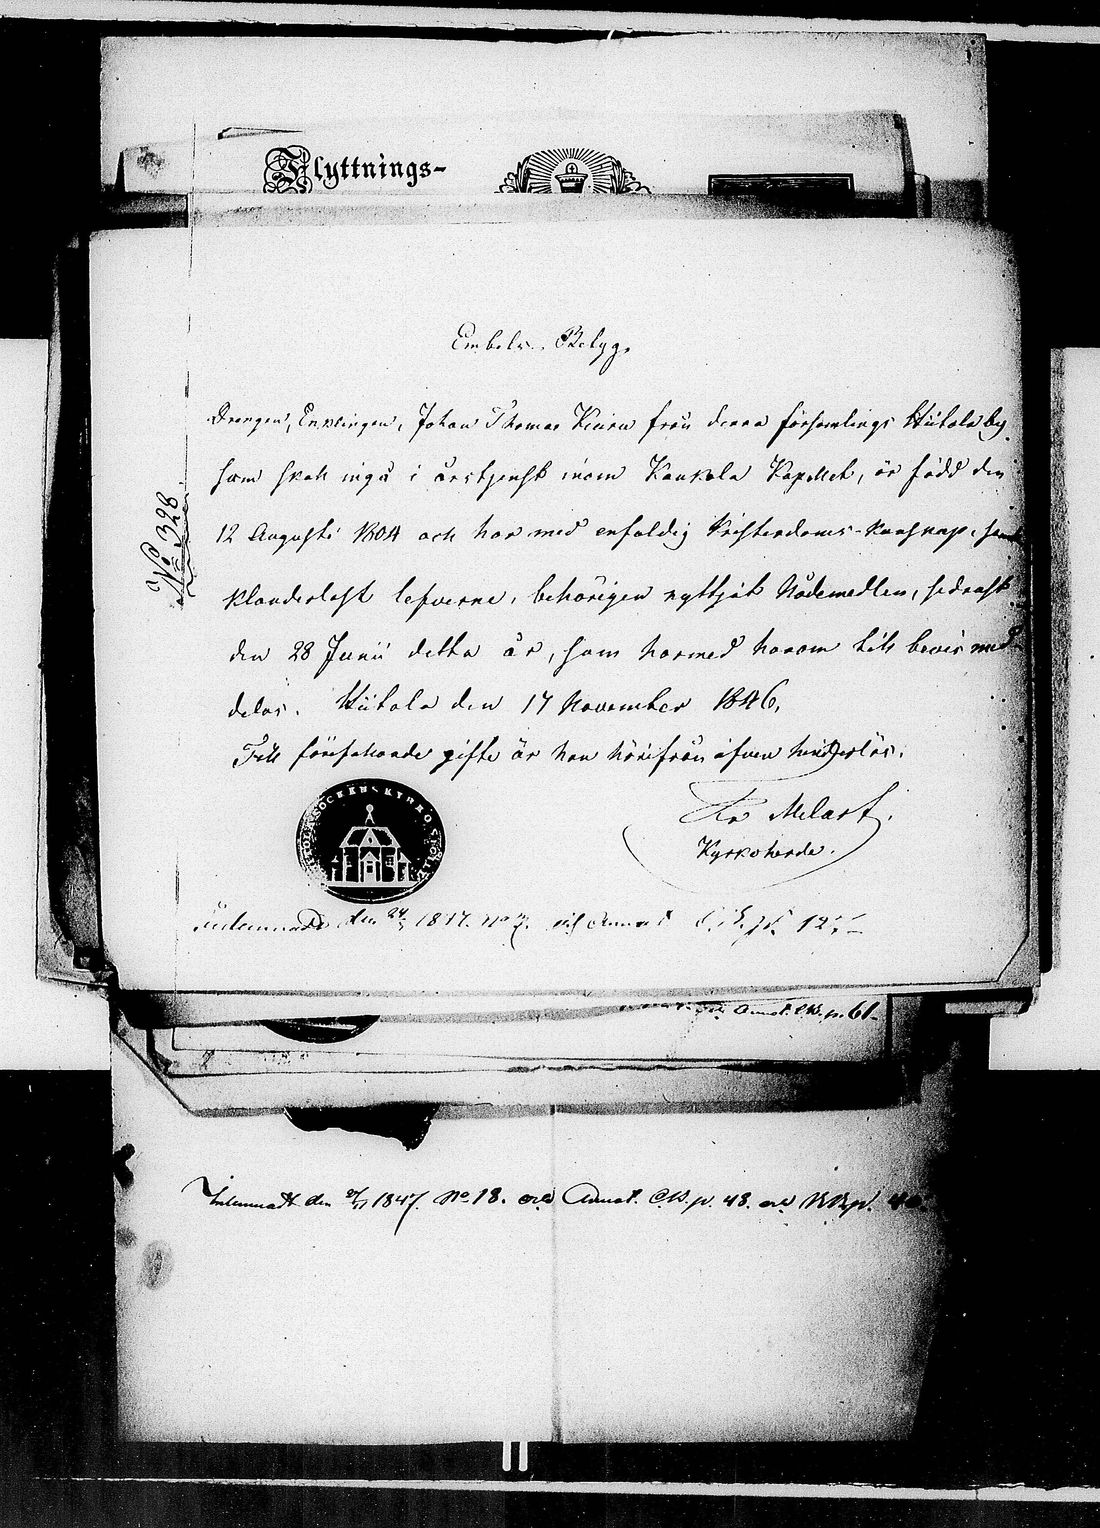 Flyttnings-
Embets-Betyg.
Drengen, Enklingen, Johan Thomas Kiuru från denna församlings Hiitola by
som skall ingå i årstjenst inom Kaukola Kapell, är född den
12 Augusti 1804 och har med enfaldig Kristendoms-kunskap, samt
klanderlöst lefverne, behörigen nyttjat Nådemedlen, sednast
den 28 Junii detta år, som härmed honom till bevis med-
delas. Hiitola den 17 November 1846.
Till förefallande gifte är han härifrån äfven hinderlös.
Melart.
Kyrkoherde.
No 328
SOCKENS KYRKO
den 1847. No
Annot. C.B. p. 61
Inlemnadt den 1847. No 18. och Annot. C.B. p. 48.